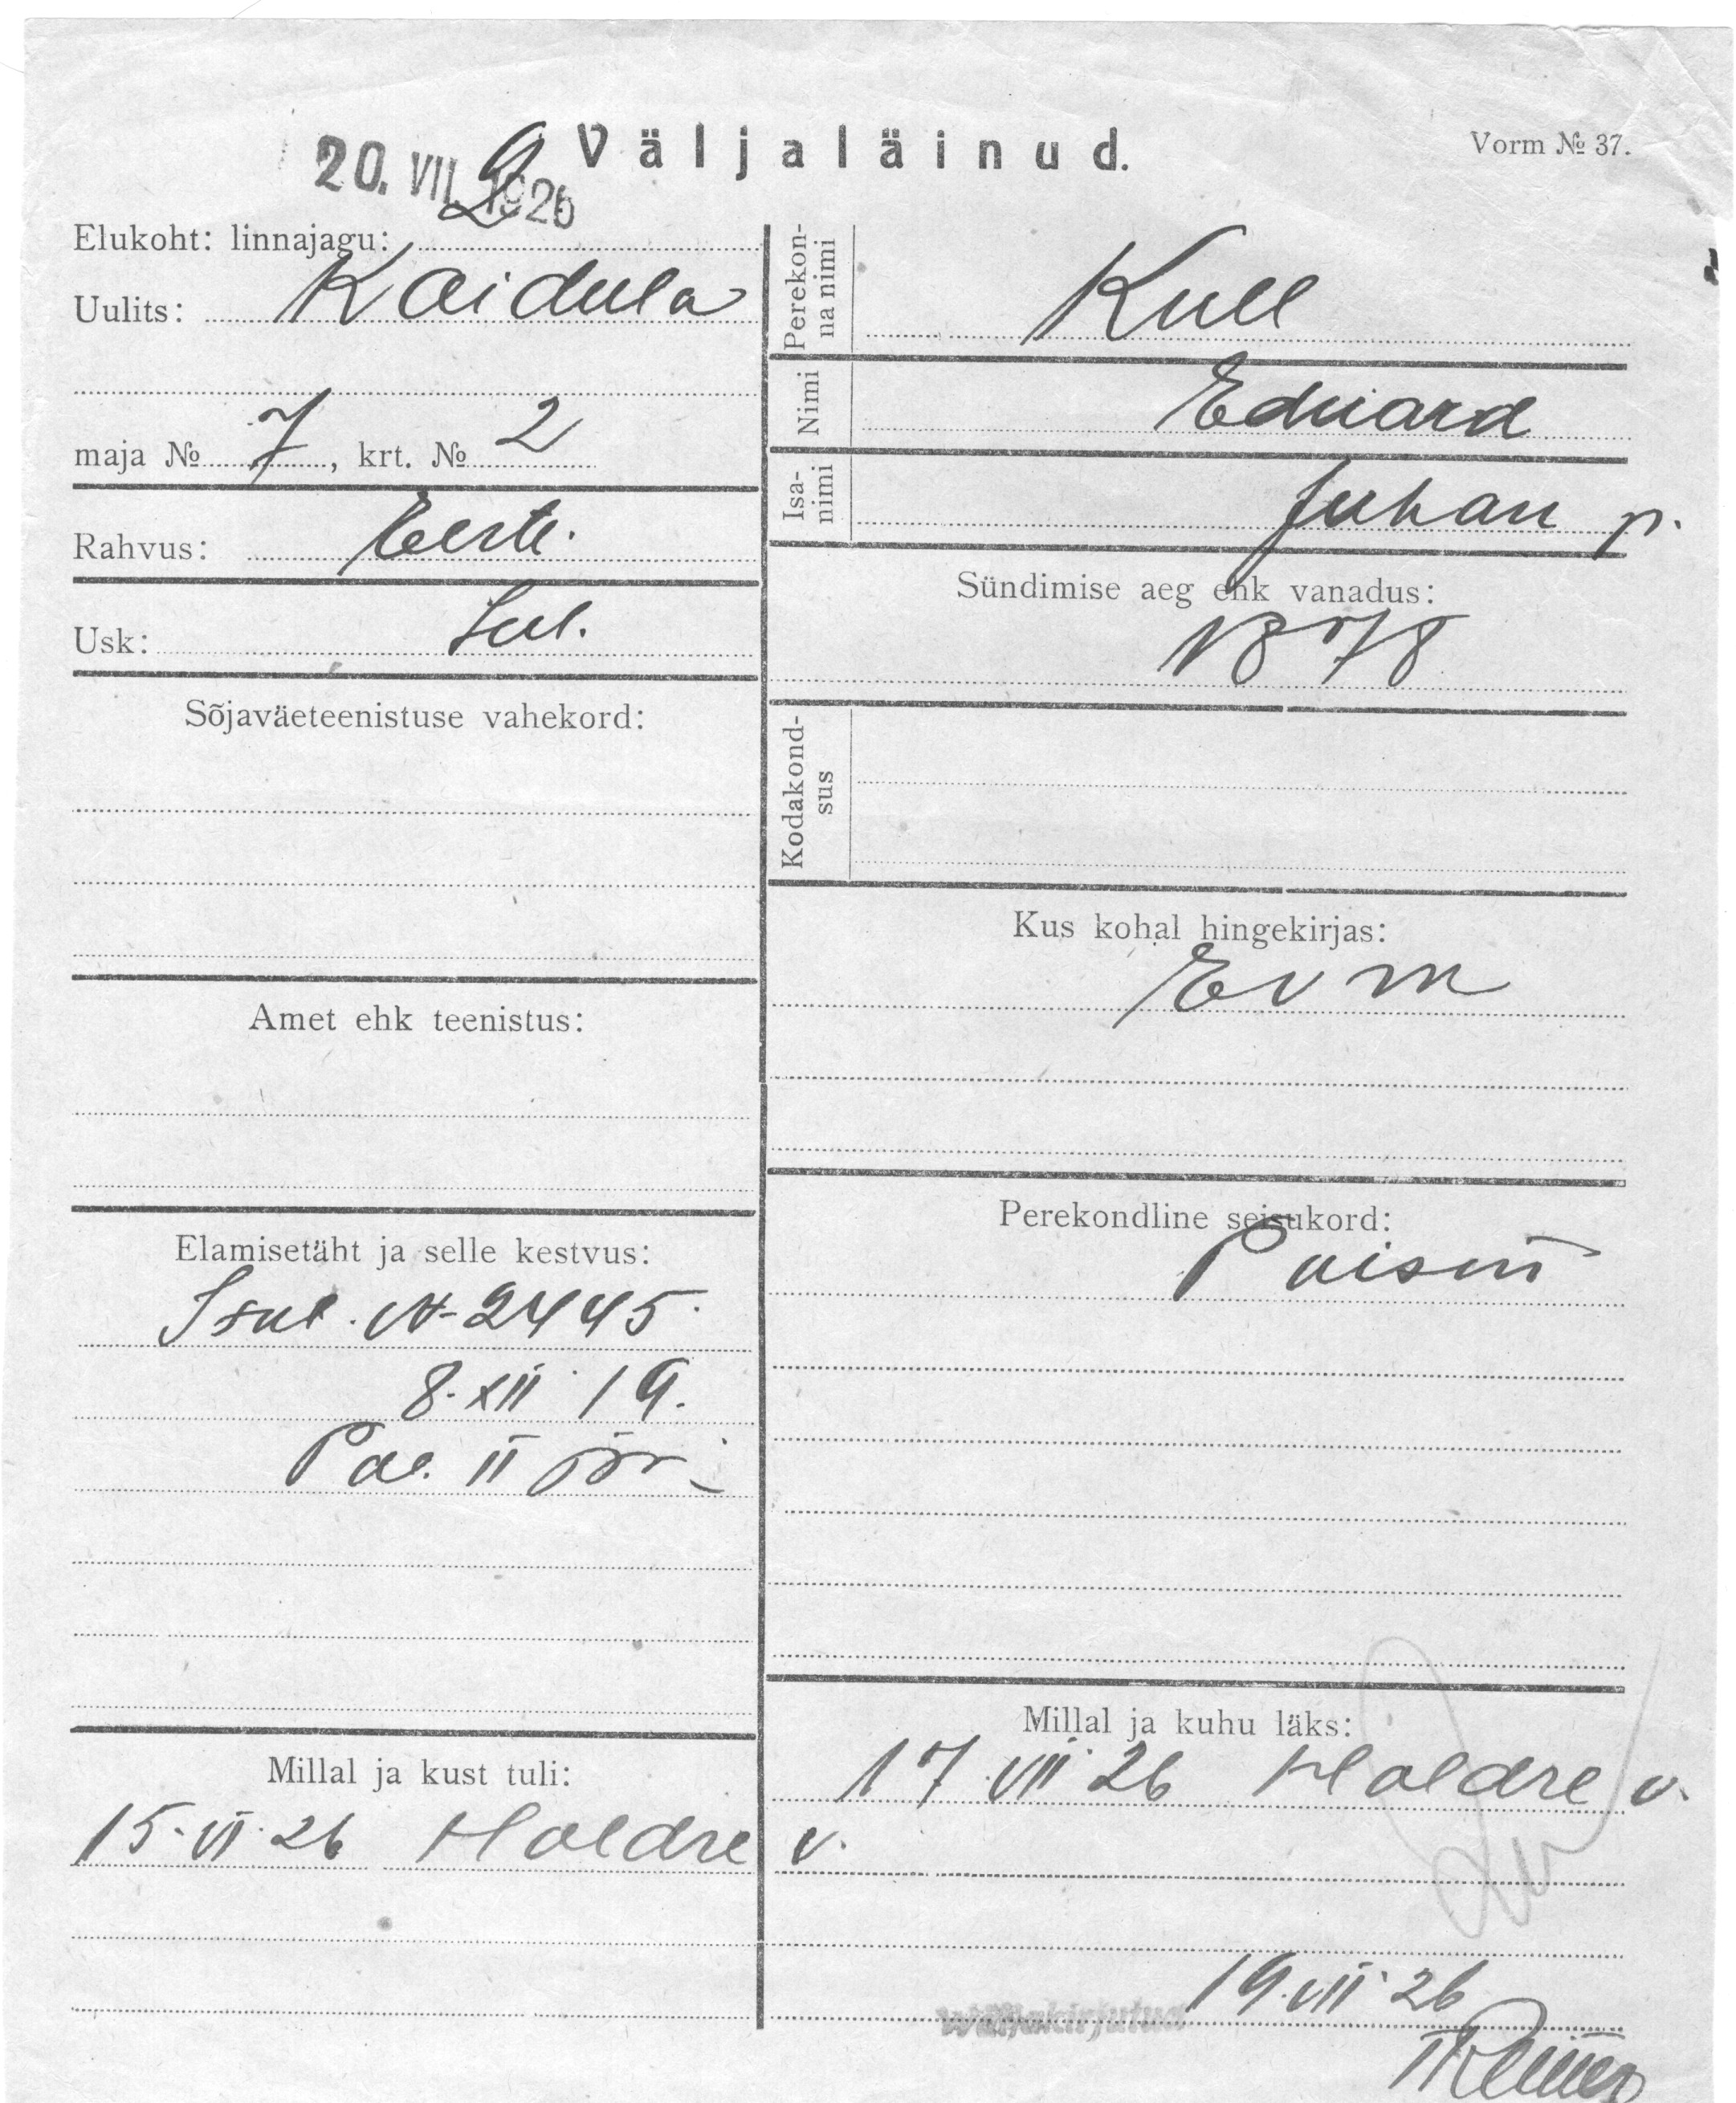 Väljaläinud.
Vorm № 37.
20. VII 1926
2
Elukoht: linnajagu:
Uulits: Koidula
maja № 7, krt. № 2
Rahvus: Eesti.
Usk: Lut.
Sõjaväeteenistuse vahekord:
Amet ehk teenistus:
Elamisetäht ja selle kestvus:
Isut. N-2445.
8. XII 19.
Pol. II
Millal ja kust tuli:
15. VI. 26 Holdre v.
Perekon-
na nimi
Kull
Nimi
Eduard
Isa-
nimi
Juhan p.
Sündimise aeg ehk vanadus:
1878
Kodakond-
sus
Kus kohal hingekirjas:
Perekondline seisukord:
Millal ja kuhu läks:
17. VII 26 Holdre v.
19. VII 26
Wäljakirjutud